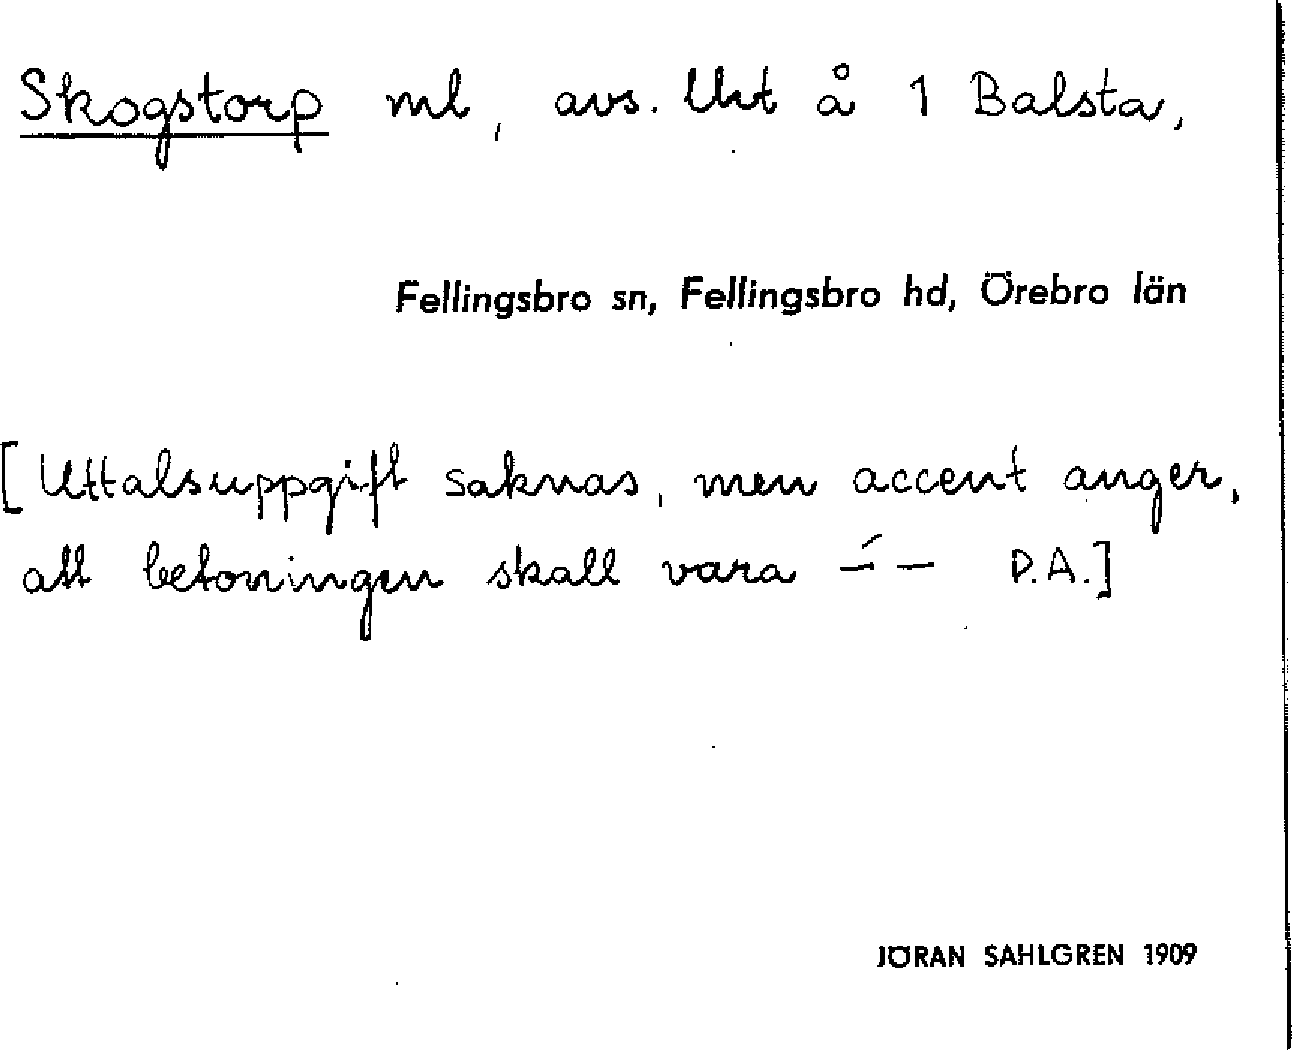 Skogstorp ml, avs. Urt å 1 Balsta,
Fellingsbro sn, Fellingsbro hd, Örebro län
[Uttalsuppgift saknas, men accent anger,
att betoningen skall vara –́ – D.A.]
JÖRAN SAHLGREN 1909